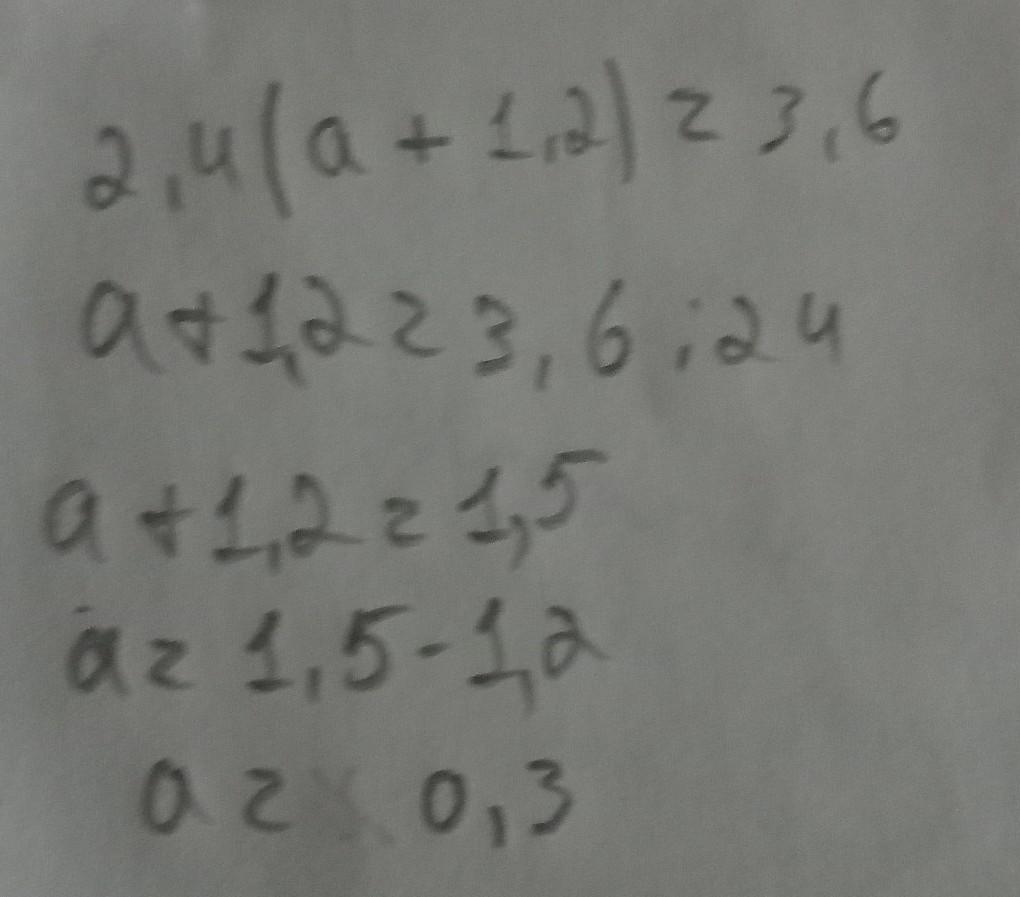 2,4(a + 1,2) = 3,6
a + 1,2 = 3,6 : 24
a + 1,2 = 1,5
a = 1,5 - 1,2
a = 0,3